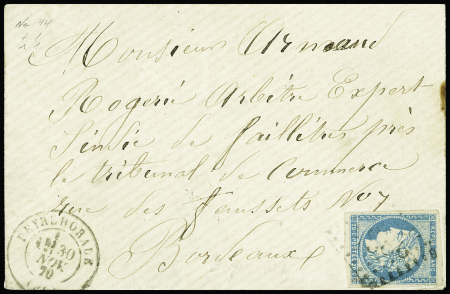 No 44
Monsieur Armand
Rogerié Arbitre Expert
Sindic de faillites près
le tribunal de Commerce
rue des Faussets No 7
Bordeaux
PEYREHORADE
30
NOV.
70